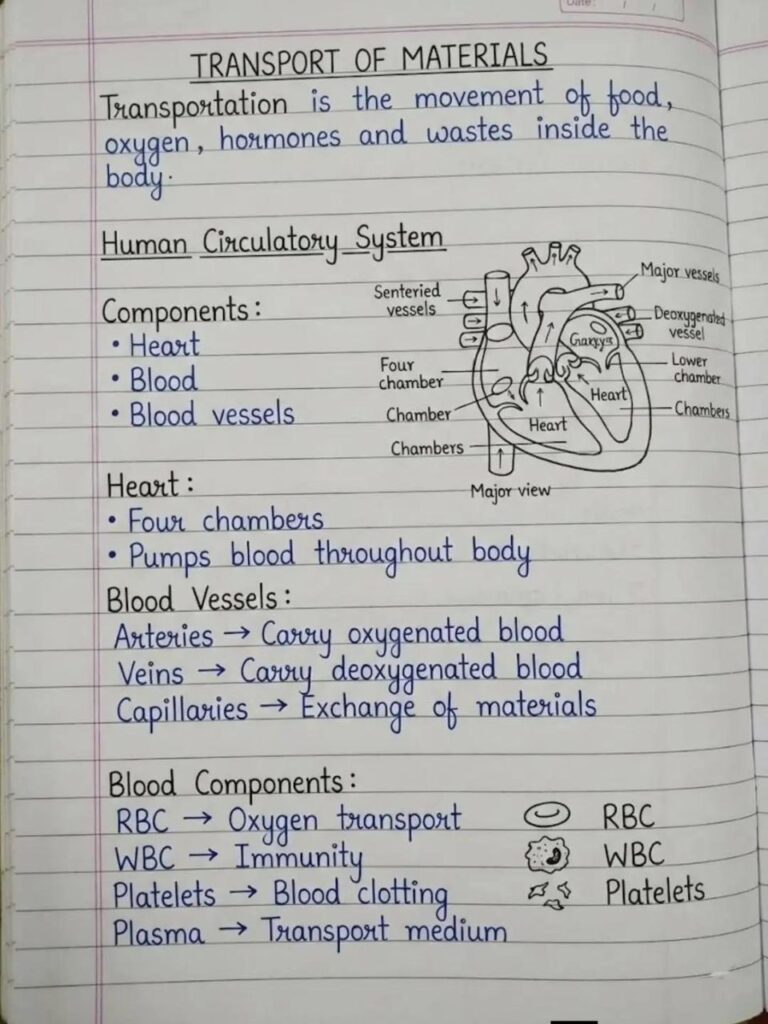 Date: / /
TRANSPORT OF MATERIALS
Transportation is the movement of food,
oxygen, hormones and wastes inside the
body.
Human Circulatory System
Components:
• Heart
• Blood
• Blood vessels
Senteried
vessels
Four
chamber
Chamber
Chambers
Major vessels
Deoxygenated
vessel
Lower
chamber
Chambers
Heart
Heart
Major view
Heart:
• Four chambers
• Pumps blood throughout body
Blood Vessels:
Arteries → Carry oxygenated blood
Veins → Carry deoxygenated blood
Capillaries → Exchange of materials
Blood Components:
RBC → Oxygen transport
WBC → Immunity
Platelets → Blood clotting
Plasma → Transport medium
RBC
WBC
Platelets